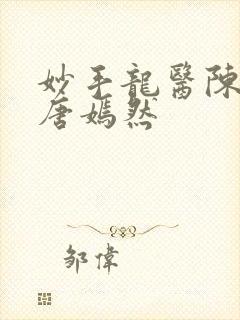 妙手龍醫陳
唐嫣然
鄒偉